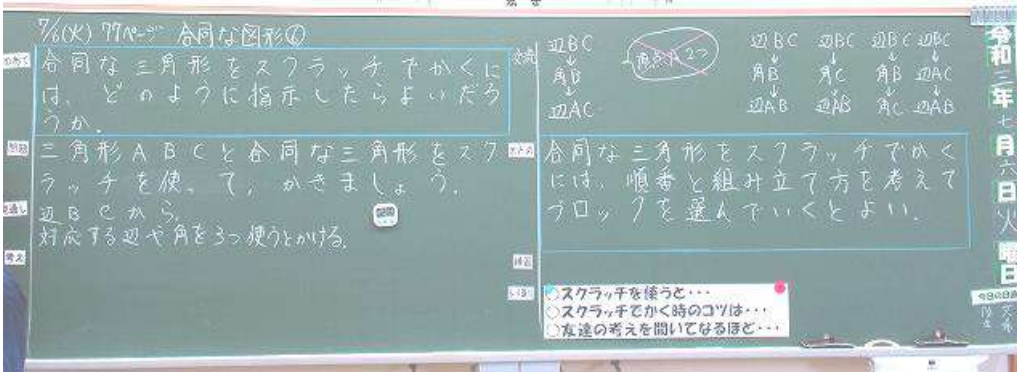 7/6(火) 77ページ 合同な図形⑥
めあて
合同な三角形をスクラッチでかくに
は、どのように指示したらよいだろ
うか。
問題
三角形ABCと合同な三角形をスク
ラッチを使って、かきましょう。
見通し
辺BCから。
対応する辺や角を3つ使うとかける。
考え
交流
辺BC
↓
角B
↓
辺AC
頂点A 2つ
辺BC 辺BC 辺BC 辺BC
↓ ↓ ↓ ↓
角B 角C 角B 辺AC
↓ ↓ ↓ ↓
辺AB 辺AB 角C 辺AB
まとめ
合同な三角形をスクラッチでかく
には、順番と組み立て方を考えて
ブロックを選んでいくとよい。
練習
○スクラッチを使うと・・・
○スクラッチでかく時のコツは・・・
○友達の考えを聞いてなるほど・・・
令和三年七月六日火曜日
今日の日直